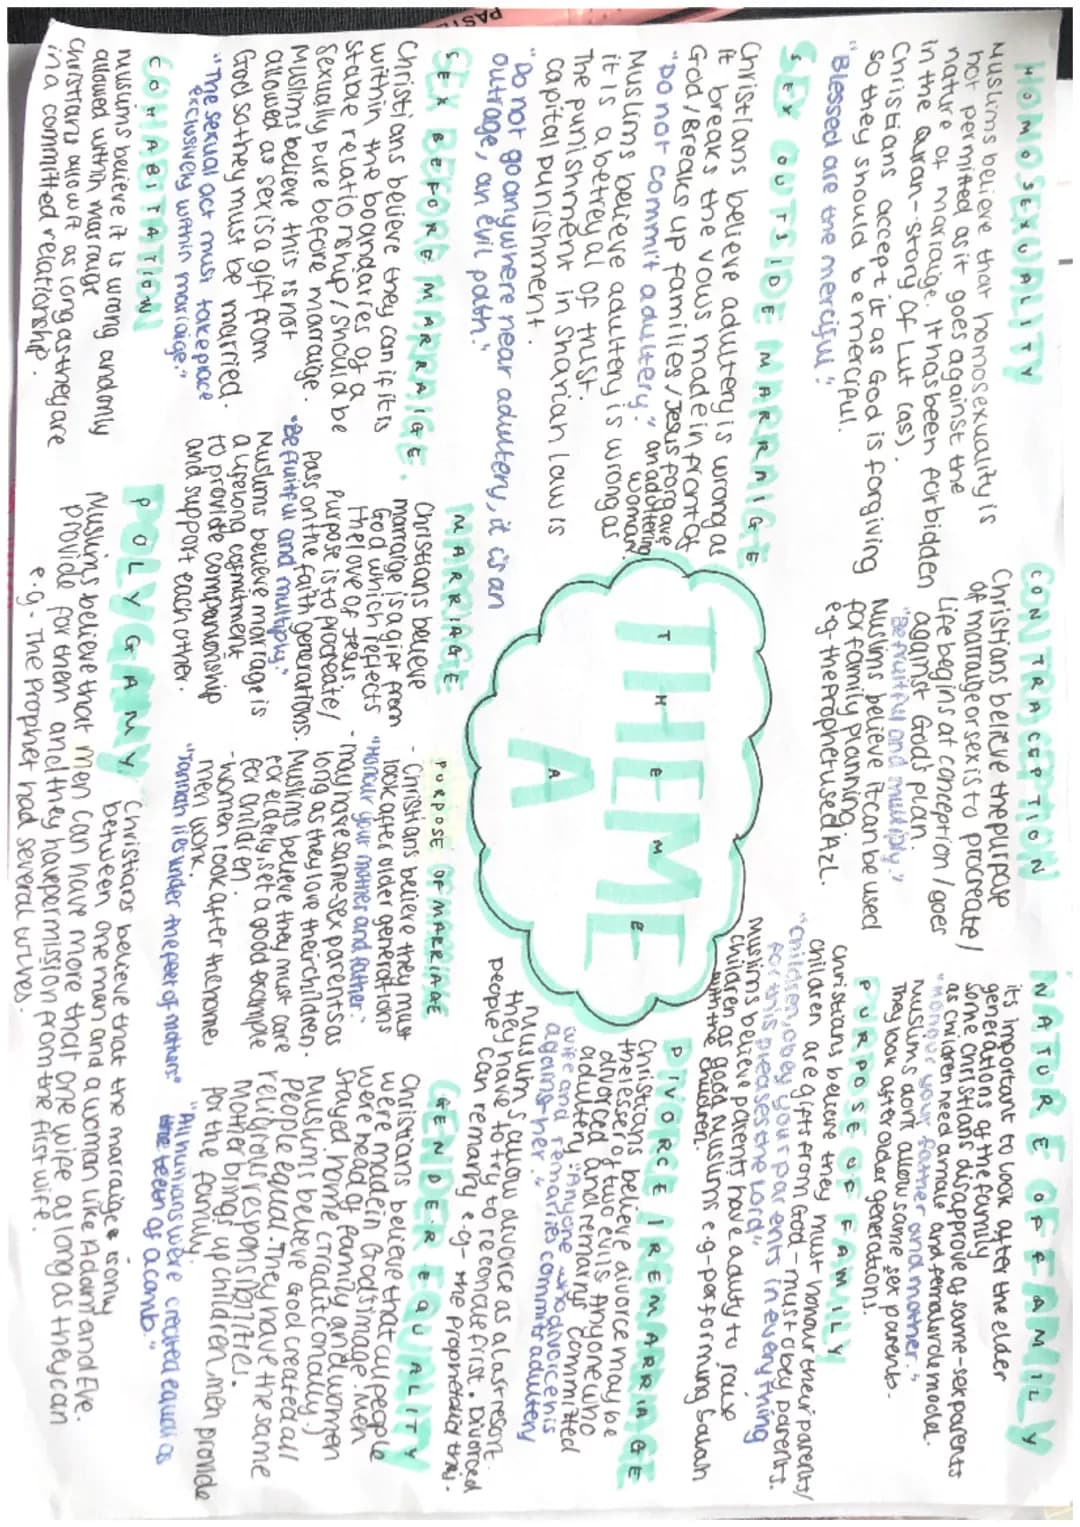 PASTEL
HOMOSEXUALITY
Muslims believe that homosexuality is
not permitted as it goes against the
nature of marraige. It has been forbidden
in the Quran - Story of Lut (as).
Christians accept it as God is forgiving
so they should be merciful.
"Blessed are the merciful."
SEX OUTSIDE MARRAIGE
Christians believe adultery is wrong as
it breaks the vows made in front of
God / Breaks up families / Jesus forgave
"Do not commit adultery." an adultering
woman.
Muslims believe adultery is wrong as
it is a betreyal of trust.
The punishment in Shariah law is
capital punishment.
"Do not go anywhere near adultery, it is an
outrage, an evil path."
SEX BEFORE MARRAIGE.
Christians believe they can if it is
within the boandaries of a
stable relationship / should be
sexually pure before marraige.
Muslims believe this is not
allowed as sex is a gift from
God so they must be married.
"The sexual act must take place
exclusively within marraige."
COHABITATION
muslims believe it is wrong and only
allowed within marraige
Christians allow it as long as they are
in a committed relationship.
CONTRACEPTION
Christians believe the purpose
of marraige or sex is to procreate /
Life begins at conception / goes
against God's plan.
"Be fruitful and multiply."
Muslims believe it can be used
for family planning.
e.g - the Prophet used Azl.
THEME
THEME
A
A
MARRIAGE
Christians believe
marraige is a gift from
God which reflects
the love of Jesus
Purpose is to procreate /
pass on the faith generations.
"Be fruitful and multiply."
Muslims believe marraige is
a lifelong commitment
to provide companionship
and support each other.
PURPOSE OF MARRIAGE
- Christians believe they must
look after older generations
"Honour your mother and father."
- may have same-sex parents as
long as they love their children.
- Muslims believe they must care
for elderly, set a good example
for children.
- women look after the home
men work.
"Jannah lies under the feet of mothers"
POLYGAMY
Christians believe that the marraige is only
between one man and a woman like Adam and Eve.
Muslims believe that men can have more that one wife as long as they can
provide for them and they have permission from the first wife.
e.g - The Prophet had several wives.
NATURE OF FAMILY
it's important to look after the elder
generations of the family
some Christians disapprove of same-sex parents
as children need a male and female role model.
"Honour your father and mother."
Muslims don't allow same sex parents.
They look after older generations.
PURPOSE OF FAMILY
Christians believe they must honour their parents /
children are gifts from God - must obey parents.
"Children, obey your parents in everything
for this pleases the Lord"
Muslims believe parents have a duty to raise
children as good Muslims e.g - performing Salah
with the children.
DIVORCE / REMARRIAGE
Christians believe divorce may be
the lesser of two evils. Anyone who
divorced and remarries committed
adultery "Anyone who divorces his
wife and remarries commits adultery
against her."
Muslims allow divorce as a last resort.
they have to try to reconcile first. Divorced
people can remarry e.g - the Prophet did this.
GENDER EQUALITY
Christians believe that all people
were made in God's image. Men
were head of family and women
stayed home (traditionally)
Muslims believe God created all
people equal. They have the same
religious responsibilites.
Mother brings up children, men provide
for the family.
"All humans were created equal as
the teeth of a comb."